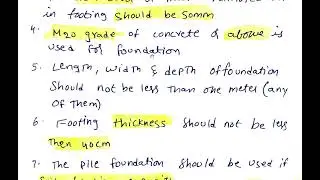 in footing should be 50mm
4. M20 grade of concrete & above is
used for foundation
5. Length, width & depth of foundation
should not be less than one meter (any
of them)
6. Footing thickness should not be less
then 40cm
7. The pile foundation should be used if